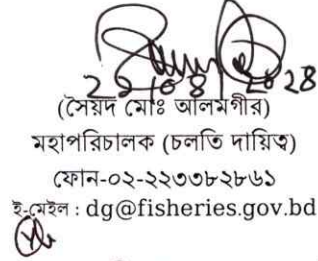 (সৈয়দ মোঃ আলমগীর)
মহাপরিচালক (চলতি দায়িত্ব)
ফোন-০২-২২৩৩৮২৮৬১
ই-মেইল : dg@fisheries.gov.bd